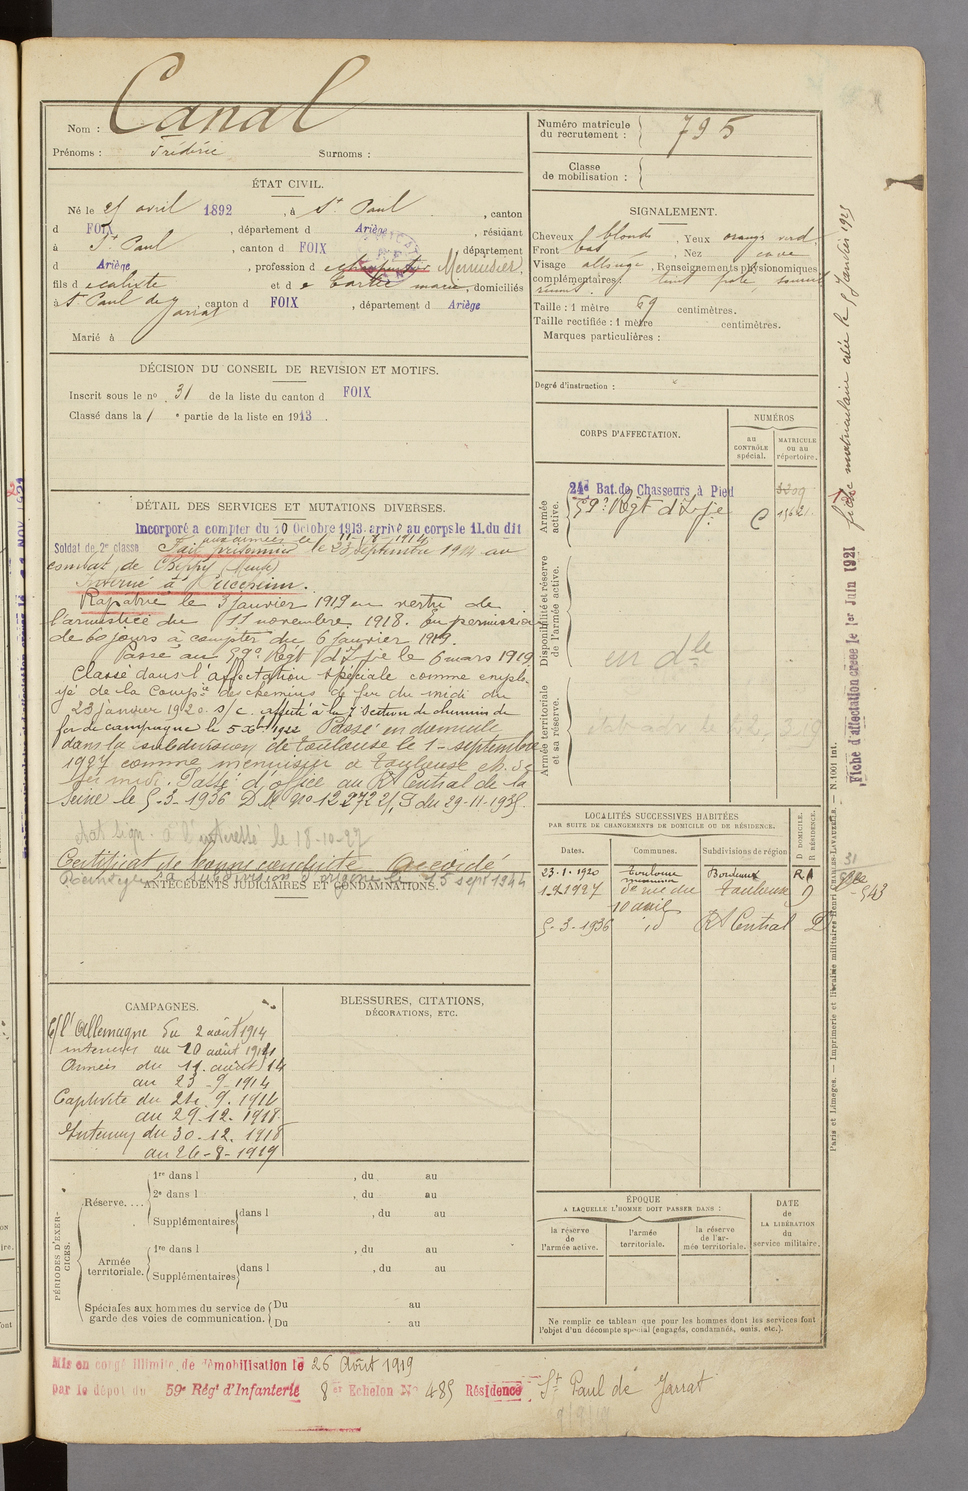 Nom : Canal
Prénoms : Frédéric Surnoms :
Numéro matricule du recrutement : 795
Classe de mobilisation :
ÉTAT CIVIL.
Né le 25 avril 1892, à St Paul, canton
d FOIX, département d Ariège, résidant
à St Paul, canton d FOIX, département
d Ariège, profession d Menuisier.
fils d e Calixte et d e marie, domiciliés
à St Paul de Jarrat, canton d FOIX, département d Ariège
Marié à
SIGNALEMENT.
Cheveux blonds, Yeux orangé verd.
Front bas, Nez cave
Visage allongé, Renseignements physionomiques
complémentaires : teint pâle,
Taille : 1 mètre 69 centimètres.
Taille rectifiée : 1 mètre centimètres.
Marques particulières :
Degré d'instruction :
DÉCISION DU CONSEIL DE REVISION ET MOTIFS.
Inscrit sous le no 31 de la liste du canton d FOIX
Classé dans la 1 e partie de la liste en 1913.
CORPS D'AFFECTATION.
NUMÉROS
au CONTRÔLE spécial.
MATRICULE ou au répertoire.
Armée active.
24e Bat. de Chasseurs à Pied
59e Régt d'Ifie
Disponibilité et réserve de l'armée active.
en dlle
Armée territoriale et sa réserve.
DÉTAIL DES SERVICES ET MUTATIONS DIVERSES.
Incorporé à compter du 10 Octobre 1913. arrivé au corps le 11. du dit
Soldat de 2e classe
Fait prisonnier le 23 septembre 1914 au
combat de
Interné à
Rapatrié le 3 janvier 1919 en vertu de
l'armistice du 11 novembre 1918. En permission
de 60 jours à compter du 6 janvier 1919.
Passé au 59e Régt d'Ifie le 6 mars 1919
Classé dans l'affectation spéciale comme emplo-
yé de la Compie des chemins de fer du midi du
23 janvier 1920. s/c. affecté à la 7 Section de chemins de
fer de campagne le 5 Passé en domicile
dans la subdivision de Toulouse le 1- septembre
1927 comme menuisier à Toulouse ch. de
fer midi. Passé d'office au Rt Central de la
Seine le 5-3-1936 D.M. no 12272 2/J du 29-11-1935.
le 18-10-27
Certificat de bonne conduite Accordé
la subdivision d'origine le 15 sept 1944
ANTÉCÉDENTS JUDICIAIRES ET CONDAMNATIONS.
LOCALITÉS SUCCESSIVES HABITÉES
PAR SUITE DE CHANGEMENTS DE DOMICILE OU DE RÉSIDENCE.
Dates. Communes. Subdivisions de région. D DOMICILE. R RÉSIDENCE.
23.1.1920 Toulouse Bordeaux R
1-9-1927 rue du 10 avril Toulouse D
5-3-1936 id Rt Central D
CAMPAGNES.
C/ l'Allemagne du 2 août 1914
intérieur au 10 août 1914
Armées du 11. août 14
au 23-9-1914
Captivité du 24. 9. 1914
au 29.12.1918
Intérieur du 30.12.1918
au 26-8-1919
BLESSURES, CITATIONS,
DÉCORATIONS, ETC.
PÉRIODES D'EXERCICES.
Réserve....
1re dans l , du au
2e dans l , du au
Supplémentaires dans l , du au
Armée territoriale.
1re dans l , du au
Supplémentaires dans l , du au
Spéciales aux hommes du service de garde des voies de communication.
Du au
Du au
ÉPOQUE
A LAQUELLE L'HOMME DOIT PASSER DANS :
la réserve de l'armée active.
l'armée territoriale.
la réserve de l'armée territoriale.
DATE de LA LIBÉRATION du service militaire.
Ne remplir ce tableau que pour les hommes dont les services font
l'objet d'un décompte spécial (engagés, condamnés, omis, etc.).
Mis en congé illimité de démobilisation le 26 Août 1919
par le dépôt du 59e Rég' d'Infanterie 8er Echelon No 485 Résidence St Paul de Jarrat
Fiche d'affectation créée le 1er Juin 1921
Paris et Limoges. — Imprimerie et librairie militaires Henri CHARLES-LAVAUZELLE. — N. 1001 int.